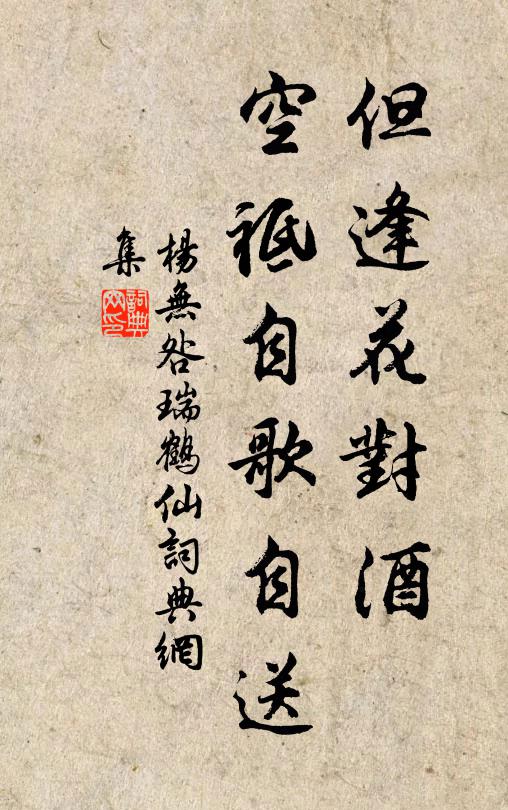 但逢花對酒
空祇自歌自送
楊無咎瑞鶴仙詞典網
集
詞典
网印